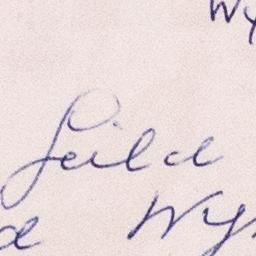 Wy
Leila
a Wy